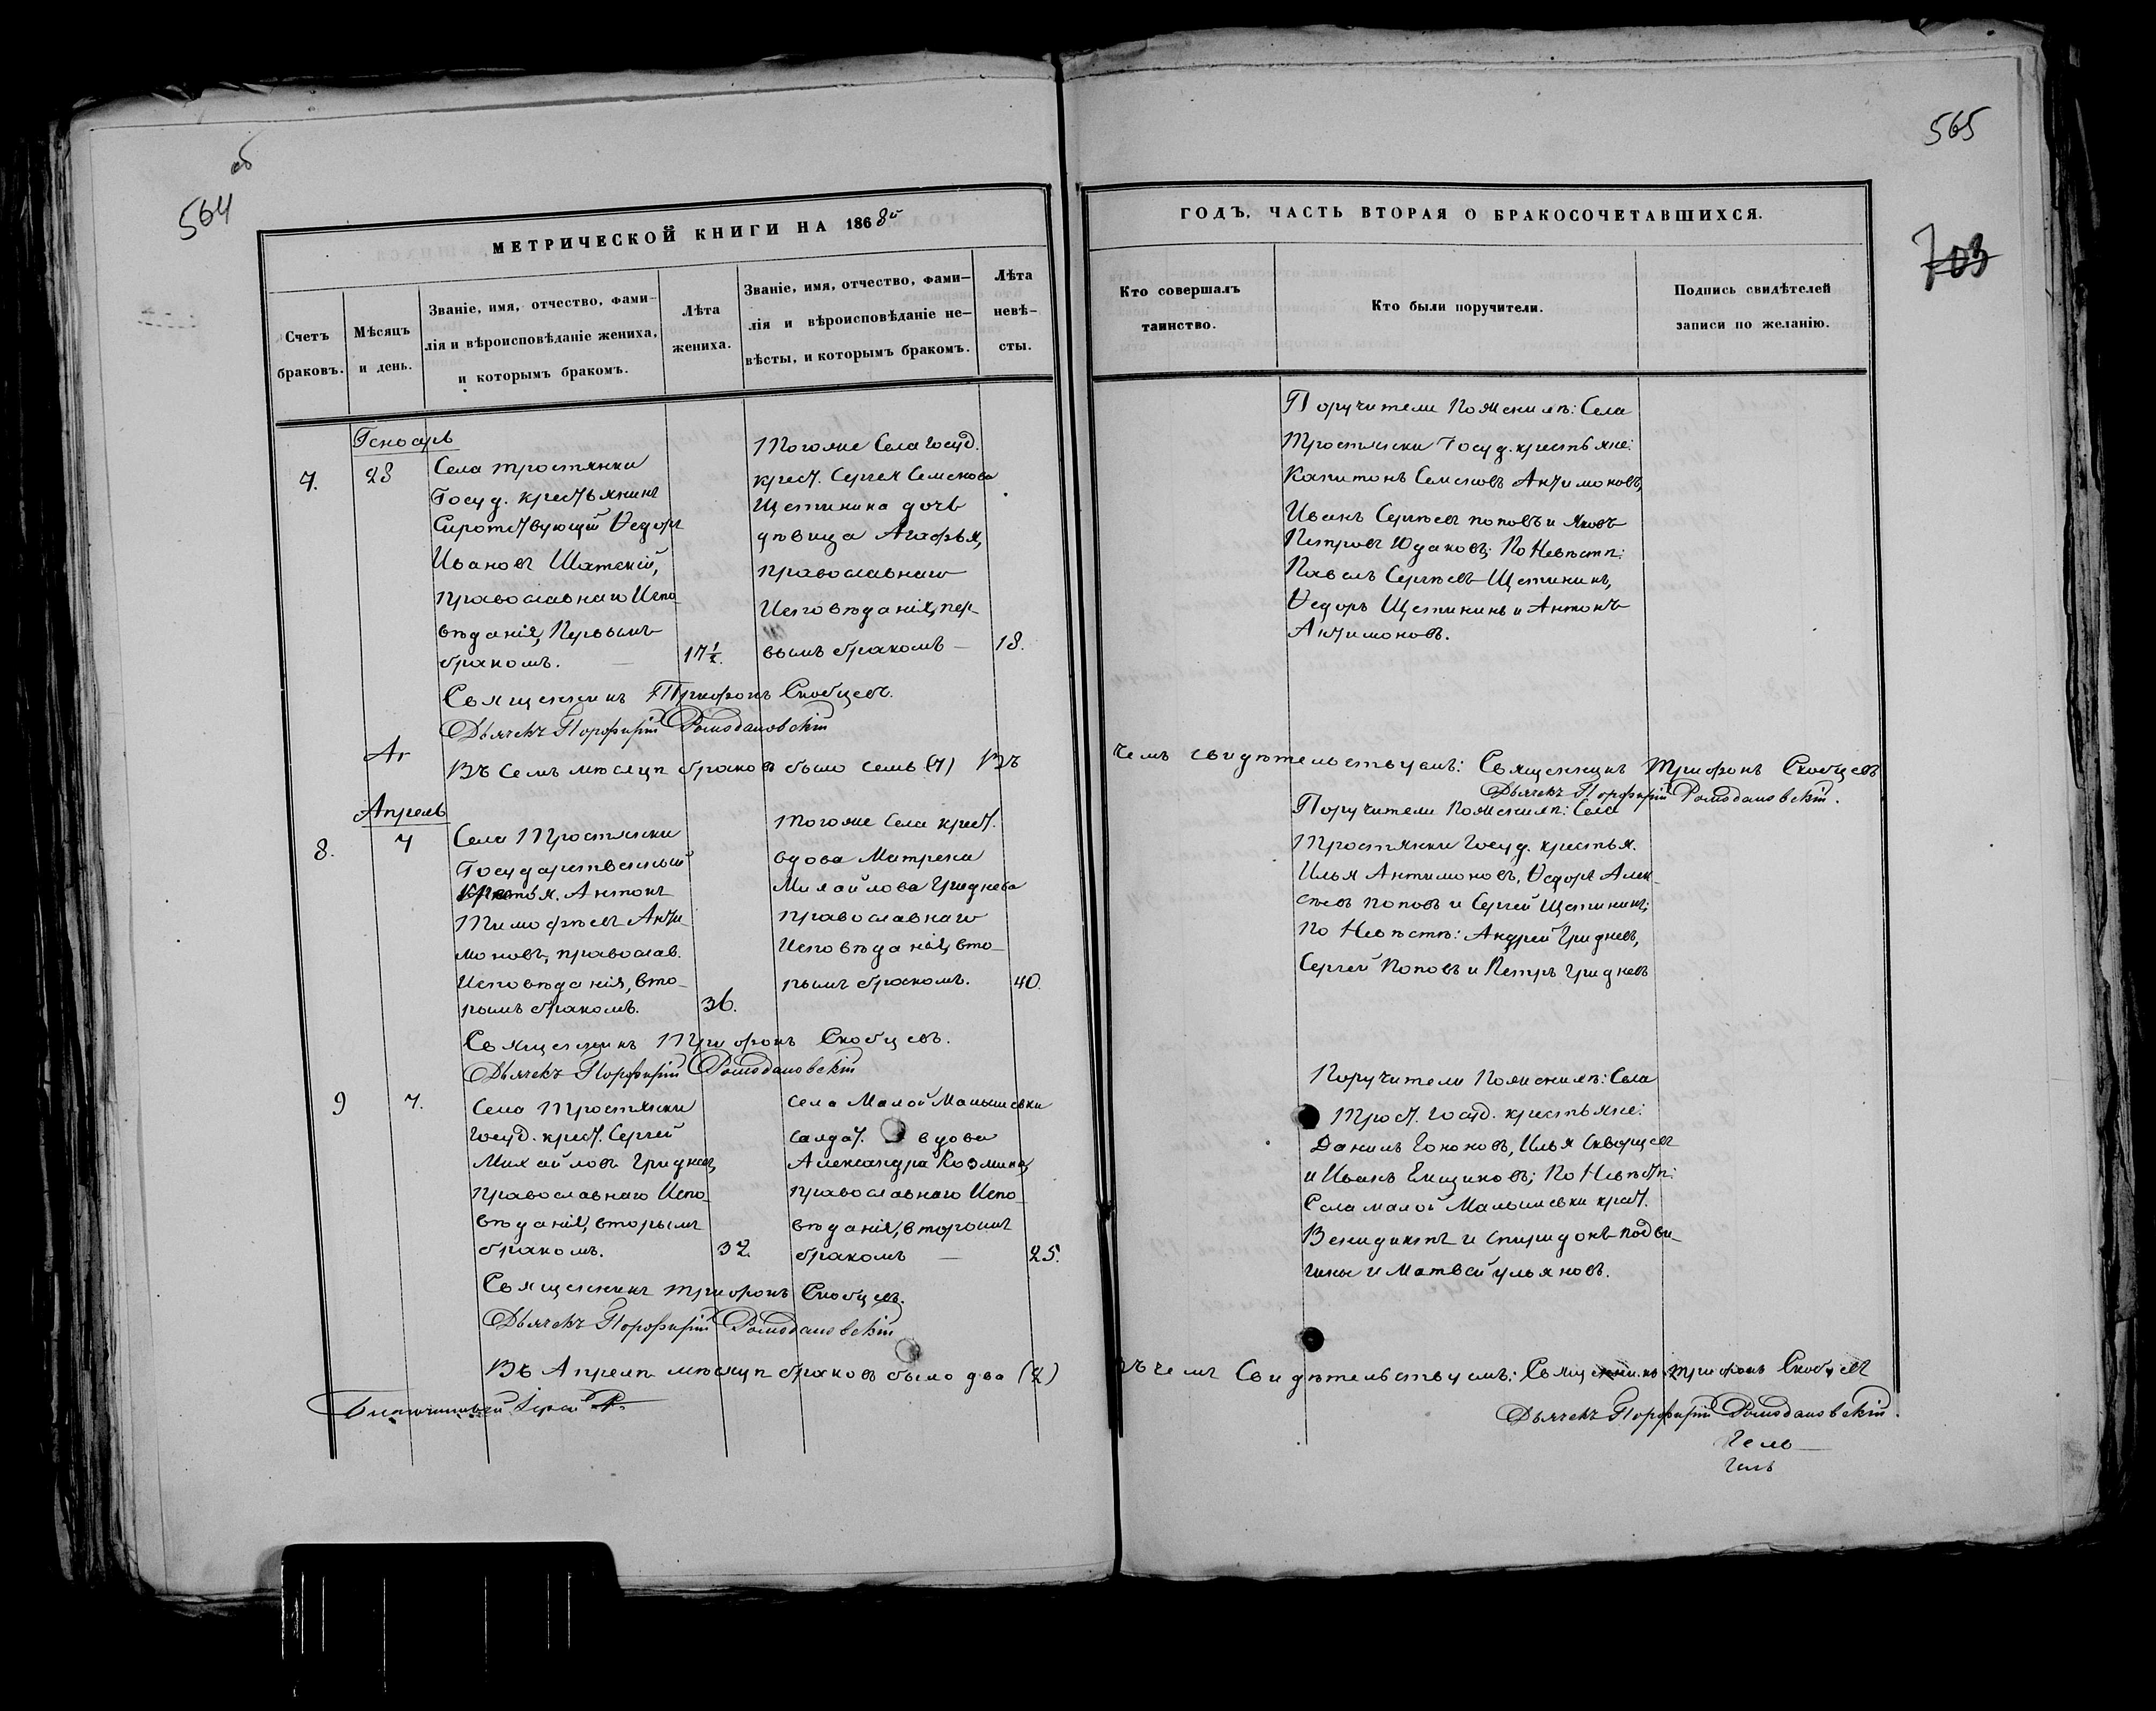 564
об
МЕТРИЧЕСКОЙ КНИГИ НА 1868й
Счетъ браковъ.
Мѣсяцъ и день.
Званіе, имя, отчество, фами-
лія и вѣроисповѣданіе жениха,
и которымъ бракомъ.
Лѣта
жениха.
Званіе, имя, отчество, фами-
лія и вѣроисповѣданіе не-
вѣсты, и которымъ бракомъ.
Лѣта
невѣ-
сты.
Генварь
7.
28
Села Тростянки
Госуд. крестьянинъ
Сиротствующій Ѳедоръ
Ивановъ Шатскій,
православнаго Испо-
вѣданія, Первымъ
бракомъ.
17½.
Тогоже Села госуд.
крест. Сергея Семенова
Щетинина дочь
дѣвица Агафья,
православнаго
Исповѣданія, пер-
вымъ бракомъ —
18.
Священникъ Трифонъ Скобцевъ.
Дьячекъ Порфирій Ромодановскій
Въ Семъ мѣсяцѣ браковъ было семь (7) Въ
Апрель
8.
7
Села Тростянки
Государственный
крестья. Антонъ
Тимофѣевъ Анти-
моновъ, православ.
Исповѣданія, вто-
рымъ бракомъ.
36.
Тогоже Села крест.
вдова Матрена
Михайлова Гриднева
православнаго
Исповѣданія, вто-
рымъ бракомъ.
40.
Священникъ Трифонъ Скобцевъ.
Дьячекъ Порфирій Ромодановскій
9
7.
Села Тростянки
Госуд. крест. Сергей
Михайловъ Гридневъ,
православнаго Испо-
вѣданія, вторымъ
бракомъ.
32.
Села Малой Малышевки
салдат. вдова
Александра Козмина,
православнаго Испо-
вѣданія, вторымъ
бракомъ —
25.
Священникъ Трифонъ Скобцевъ.
Дьячекъ Порфирій Ромодановскій
Въ Апрелѣ мѣсяцѣ браковъ было два (2)
565
703
ГОДЪ, ЧАСТЬ ВТОРАЯ О БРАКОСОЧЕТАВШИХСЯ.
Кто совершалъ
таинство.
Кто были поручители.
Подпись свидѣтелей
записи по желанію.
Поручители По Женихѣ: Села
Тростянки Госуд. крестьяне:
Капитонъ Семеновъ Антимоновъ,
Иванъ Сергѣевъ поповъ и Яковъ
Петровъ Юдаковъ; По Невѣстѣ:
Павелъ Сергѣевъ Щетининъ,
Ѳедоръ Щетининъ и Антонъ
Антимоновъ.
чемъ свидѣтельствуемъ: Священникъ Трифонъ Скобцевъ
Дьячекъ Порфирій Ромодановскій.
Поручители По Женихѣ: Села
Тростянки Госуд. крестья.
Илья Антимоновъ, Ѳедоръ Алек-
сѣевъ поповъ и Сергей Щетининъ;
По Невѣстѣ: Андрей Гридневъ,
Сергей Поповъ и Петръ Гридневъ
Поручители По Женихѣ: Села
Трост. Госуд. крестьяне:
Данилъ Гононовъ, Илья Скворцевъ
и Иванъ Емщиковъ; По Невѣстѣ:
Села малой Малышевки крест.
Венидиктъ и Спиридонъ Подви-
гины и Матвей Ульяновъ.
Въ чемъ Свидѣтельствуемъ: Священникъ Трифонъ Скобцевъ
Дьячекъ Порфирій Ромодановскій.